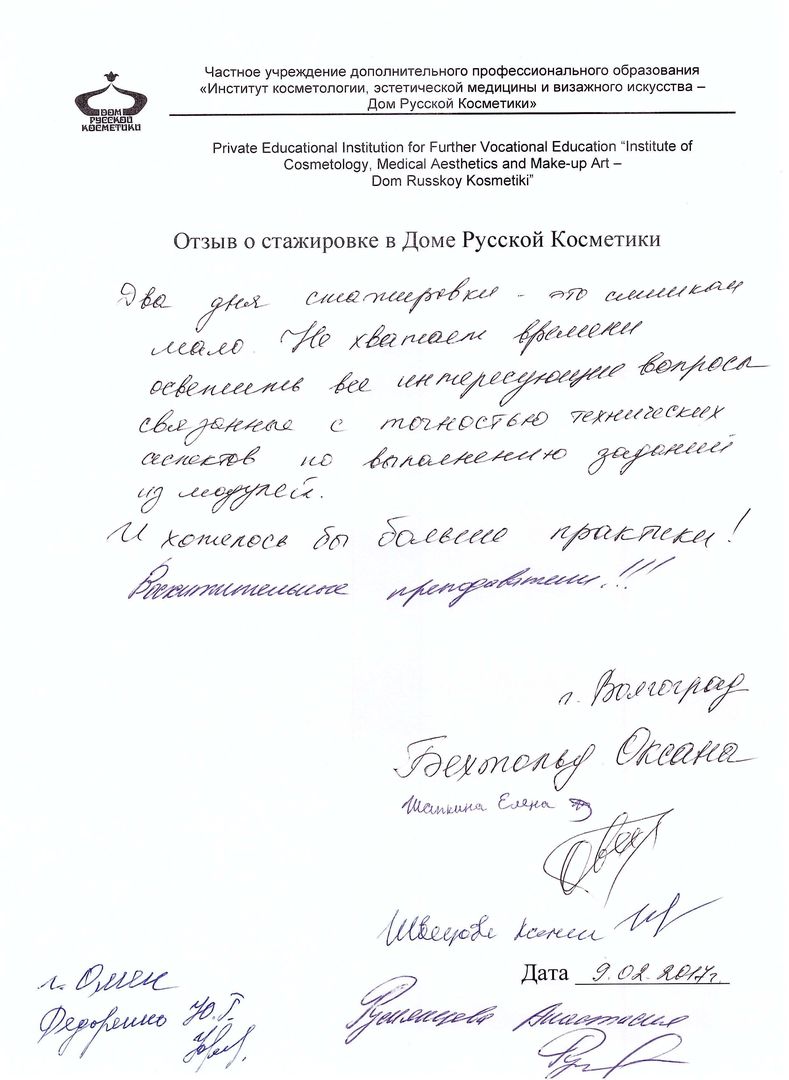 ДОМ
РУССКОЙ
КОСМЕТИКИ
Частное учреждение дополнительного профессионального образования
«Институт косметологии, эстетической медицины и визажного искусства –
Дом Русской Косметики»
Private Educational Institution for Further Vocational Education “Institute of
Cosmetology, Medical Aesthetics and Make-up Art –
Dom Russkoy Kosmetiki”
Отзыв о стажировке в Доме Русской Косметики
Два дня стажировки - это слишком
мало. Не хватает времени
осветить все интересующие вопросы
связанные с точностью технических
аспектов по выполнению заданий
из модулей.
И хотелось бы больше практики!
Восхитительные преподаватели!!!
г. Волгоград
Бехтольд Оксана
Шапкина Елена
Швецова Ксения
Дата 9.02.2017г.
г. Омск
Федоренко Ю.Г.
Румянцева Анастасия